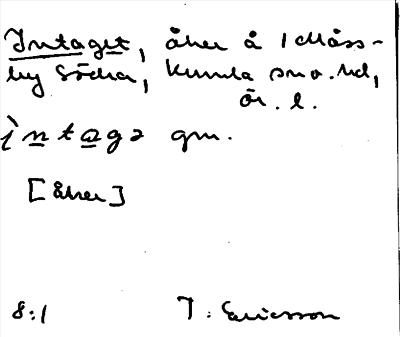 Intaget, åker å 1 Moss-
by Södra, Kumla sn o. hd,
Ör. l.
ìntagə gm.
[åker]
8:1 T. Ericsson